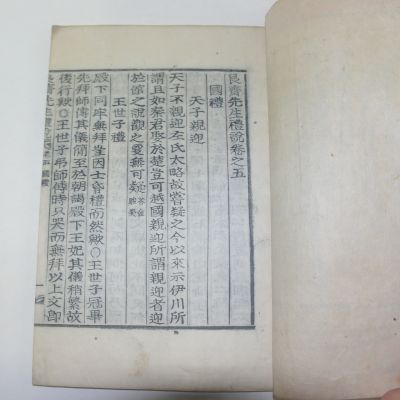 艮齋先生禮說卷之五
國禮
天子親迎
天子不親迎左氏太略故嘗疑之今以來示伊川所
謂且如秦君娶於楚豈可越國親迎所謂親迎者迎
於館之說觀之更無可疑
王世子禮
殿下同牢無拜豈因士昏禮而然歟○王世子冠畢
先拜師傅其儀簡至於朝謁殿下王妃其儀稍繁故
後行歟○王世子弔師傅時只哭而無拜以上文
艮齋先生禮說 國禮 一